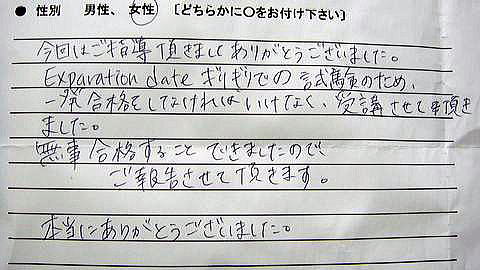 ● 性別 男性、 女性 〔どちらかに〇をお付け下さい〕
今回はご指導頂きましてありがとうございました。
Exparation date ギリギリでの試験のため、
一発合格をしなければいけなく、受講させて頂き
ました。
無事合格することできましたので、
ご報告させて頂きます。
本当にありがとうございました。